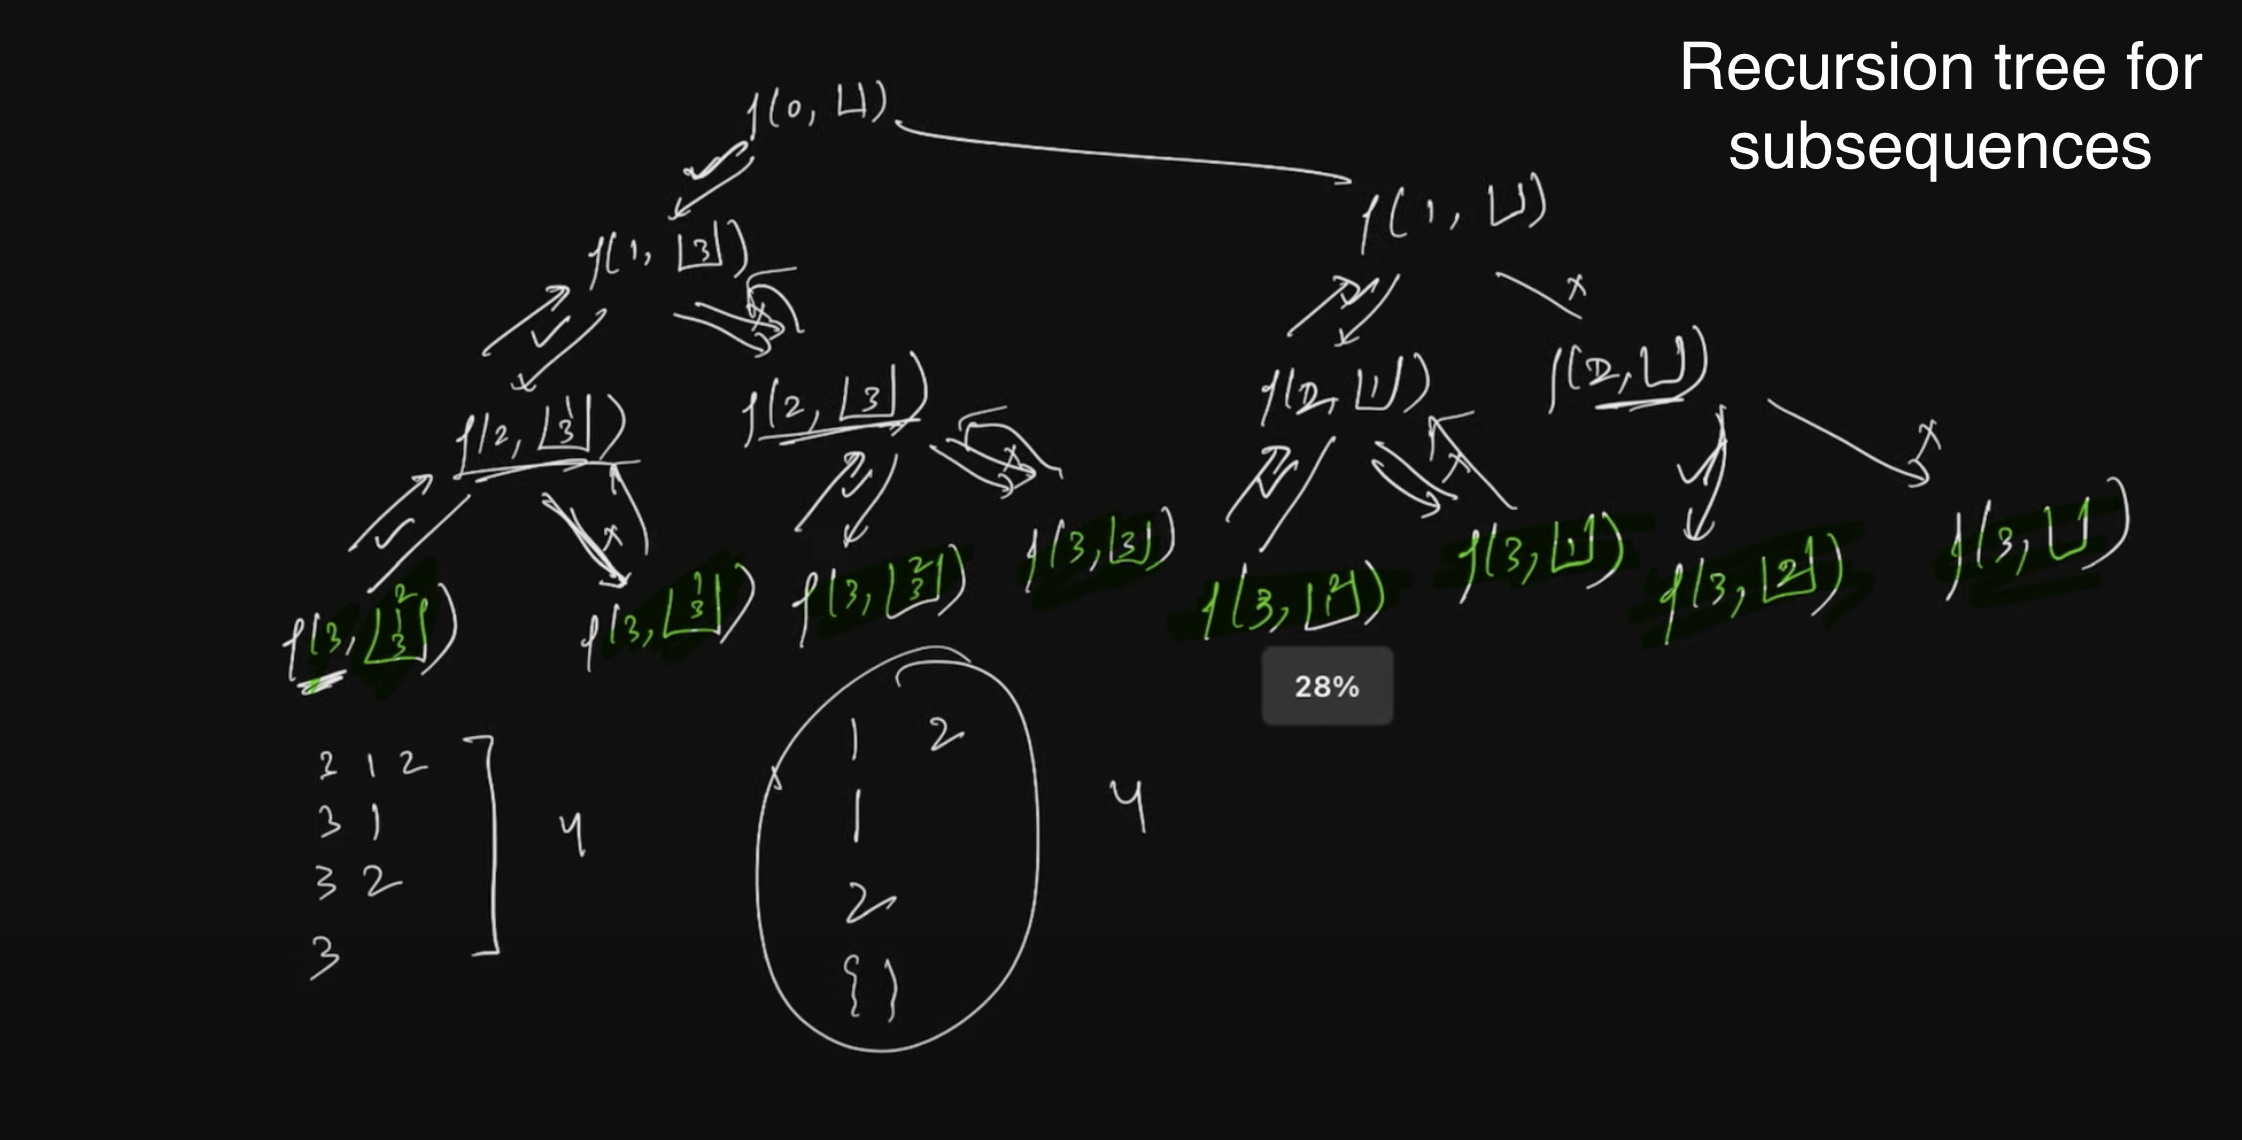 Recursion tree for
subsequences
f(0, [])
f(1, [3])
f(1, [])
✓
x
✓
x
f(2, [3 1])
f(2, [3])
f(2, [1])
f(2, [])
✓
x
✓
x
x
✓
x
f(3, [3 1 2])
f(3, [3 1])
f(3, [3 2])
f(3, [3])
f(3, [1 2])
f(3, [1])
f(3, [2])
f(3, [])
28%
3 1 2
3 1
3 2
3
4
1 2
1
2
{ }
4